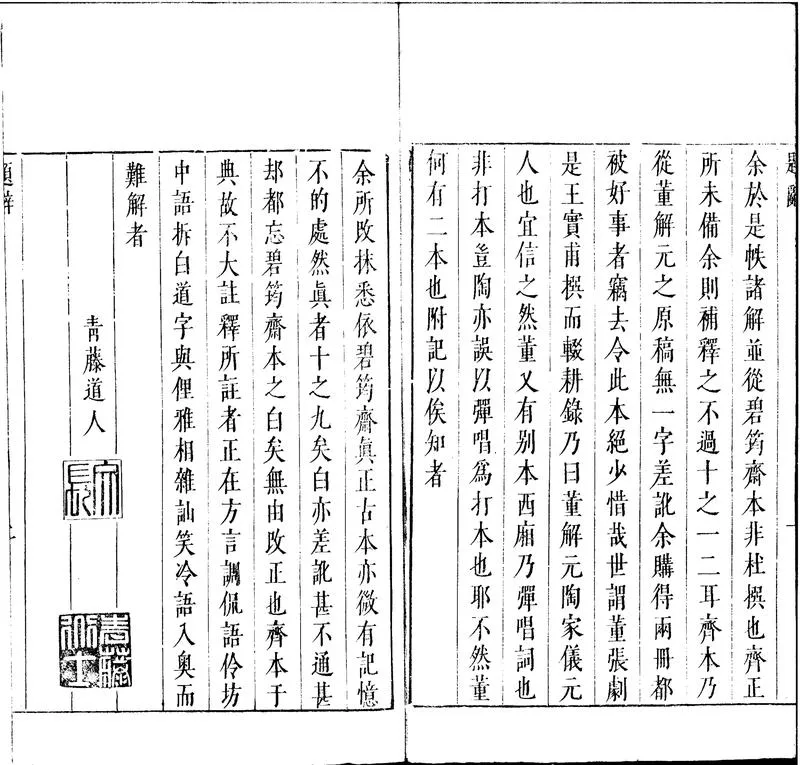 題辭
余於是帙諸解並從碧筠齋本非杜撰也齋正
所未備余則補釋之不過十之一二耳齊本乃
從董解元之原稿無一字差訛余購得兩冊都
被好事者竊去今此本絕少惜哉世謂董張劇
是王實甫撰而輟耕錄乃曰董解元陶宗儀元
人也宜信之然董又有别本西廂乃彈唱詞也
非打本豈陶亦誤以彈唱為打本也耶不然董
何有二本也附記以俟知者
余所改抹悉依碧筠齋眞正古本亦微有記憶
不的處然眞者十之九矣白亦差訛甚不通甚
却都忘碧筠齋本之白矣無由改正也齊本于
典故不大註釋所註者正在方言調侃語伶坊
中語拆白道字與俚雅相雜訕笑冷語入奥而
難解者
青藤道人
文長
青藤
題辭